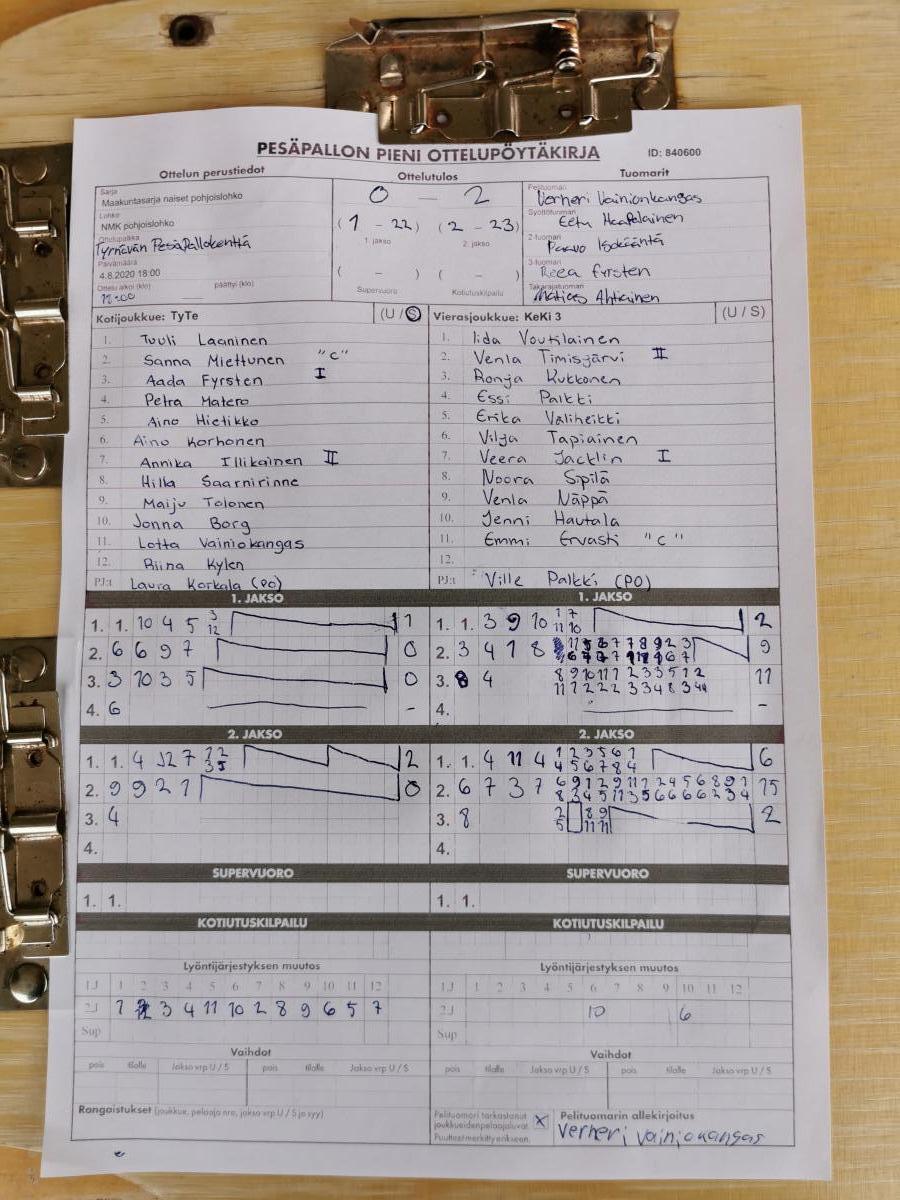 PESÄPALLON PIENI OTTELUPÖYTÄKIRJA ID: 840600
Ottelun perustiedot Ottelutulos Tuomarit
Sarja
Maakuntasarja naiset pohjoislohko
Lohko
NMK pohjoislohko
Ottelupaikka
Tyrnävän Pesäpallokenttä
Päivämäärä
4.8.2020 18:00
Ottelu alkoi (klo) päättyi (klo)
0 — 2
(1 - 22) (2 - 23)
1. jakso 2. jakso
( - ) ( - )
Supervuoro Kotiutuskilpailu
Pelituomari
Verneri Vainionkangas
Syöttötuomari
Eetu Haapalainen
2-tuomari
Paavo Isokääntä
3-tuomari
Reea Fyrsten
Takarajatuomari
Matias Ahtiainen
Kotijoukkue: TyTe (U / S)
1. Tuuli Laaninen
2. Sanna Miettunen "C"
3. Aada Fyrsten I
4. Petra Matero
5. Aino Hietikko
6. Aino Korhonen
7. Annika Illikainen II
8. Hilla Saarnirinne
9. Maiju Tolonen
10. Jonna Borg
11. Lotta Vainiokangas
12. Riina Kylen
PJ:t Laura Korkala (PO)
Vierasjoukkue: KeKi 3 (U / S)
1. Iida Voutilainen
2. Venla Timisjärvi II
3. Ronja Kukkonen
4. Essi Palkki
5. Erika Väliheikki
6. Vilja Tapiainen
7. Veera Jacklin I
8. Noora Sipilä
9. Venla Näppä
10. Jenni Hautala
11. Emmi Ervasti "C"
12.
PJ:t Ville Palkki (PO)
1. JAKSO
1. 1. 10 4 5 3 1
12
2. 6 6 9 7 0
3. 3 10 3 5 0
4. 6 -
1. JAKSO
1. 1. 3 9 10 1 7 2
11 10
2. 3 4 1 8 9
3. 8 4 11
4. -
2. JAKSO
1. 1. 4 12 7 2
2. 9 9 2 1 0
3. 4
4.
2. JAKSO
1. 1. 4 11 4 1 2 3 5 6 1 6
4 5 6 7 8 4
2. 6 7 3 7 15
3. 8 2 8 9 2
5 11 11
4.
SUPERVUORO
1. 1.
SUPERVUORO
1. 1.
KOTIUTUSKILPAILU
KOTIUTUSKILPAILU
Lyöntijärjestyksen muutos
1.J 1 2 3 4 5 6 7 8 9 10 11 12
2.J 1 12 3 4 11 10 2 8 9 6 5 7
Sup
Lyöntijärjestyksen muutos
1.J 1 2 3 4 5 6 7 8 9 10 11 12
2.J 10 6
Sup
Vaihdot
pois tilalle Jakso vrp U / S pois tilalle Jakso vrp U / S
Vaihdot
pois tilalle Jakso vrp U / S pois tilalle Jakso vrp U / S
Rangaistukset (joukkue, pelaaja nro, jakso vrp U / S ja syy)
Pelituomari tarkastanut
joukkueiden pelaajaluvat. X
Puutteet merkitty erikseen.
Pelituomarin allekirjoitus
Verneri Vainionkangas